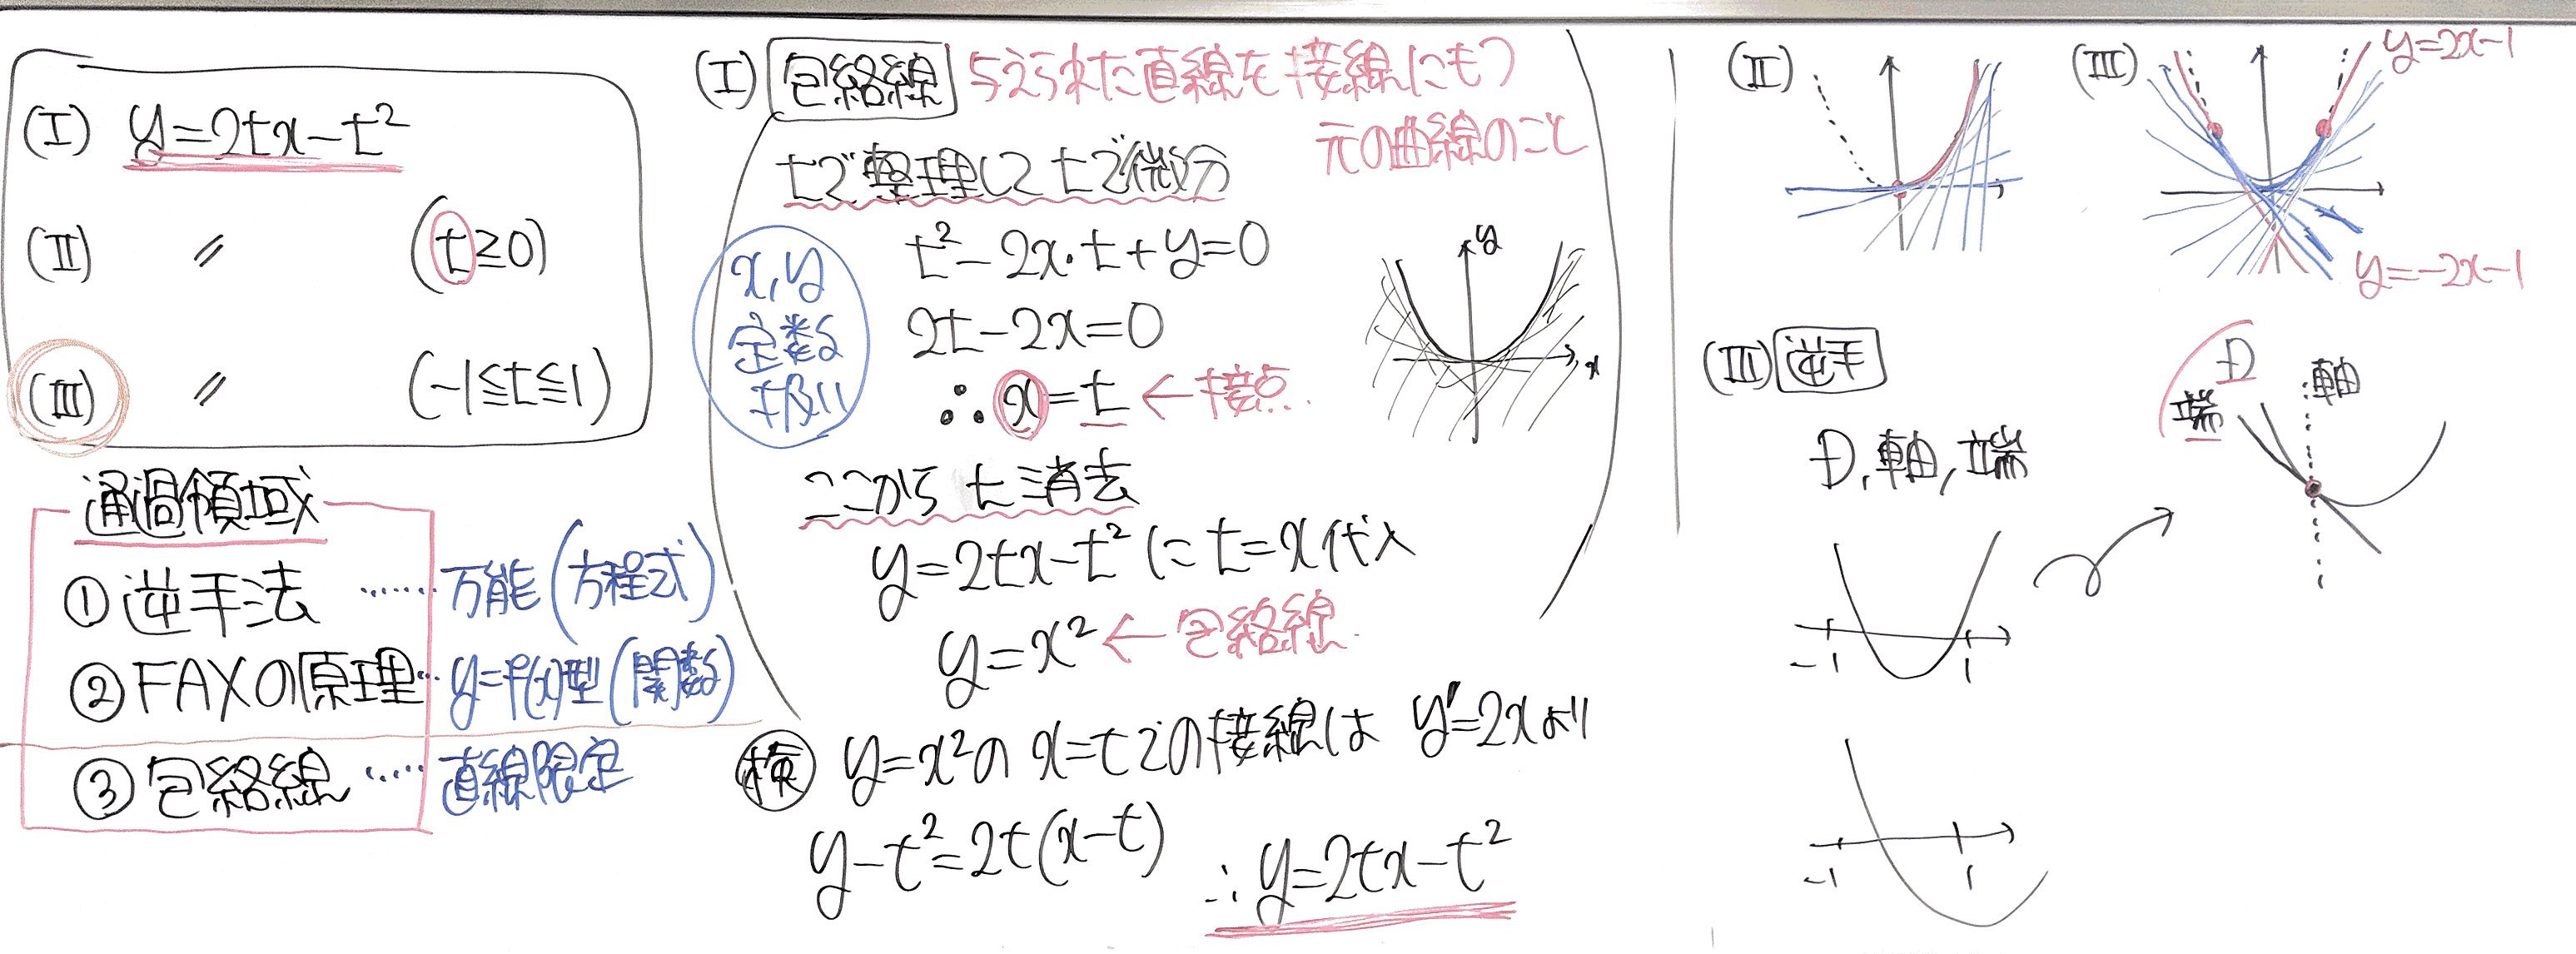 (I) y=2tx-t²
(II) 〃 (t≧0)
(III) 〃 (-1≦t≦1)
通過領域
① 逆手法 …… 万能(方程式)
② FAXの原理 … y=f(x)型(関数)
③ 包絡線 …… 直線限定
(I) 包絡線 与えられた直線を接線にもつ
元の曲線のこと
tで整理してtで微分
x,y
定数
扱い
t²-2x・t+y=0
2t-2x=0
∴ x=t ← 接点
y
x
ここから t 消去
y=2tx-t² に t=x代入
y=x² ← 包絡線
検 y=x²の x=tでの接線は y'=2xより
y-t²=2t(x-t) ∴ y=2tx-t²
(II)
(III)
y=2x-1
y=-2x-1
(III) 逆手
D,軸,端
D
端
軸
-1 1
-1 1